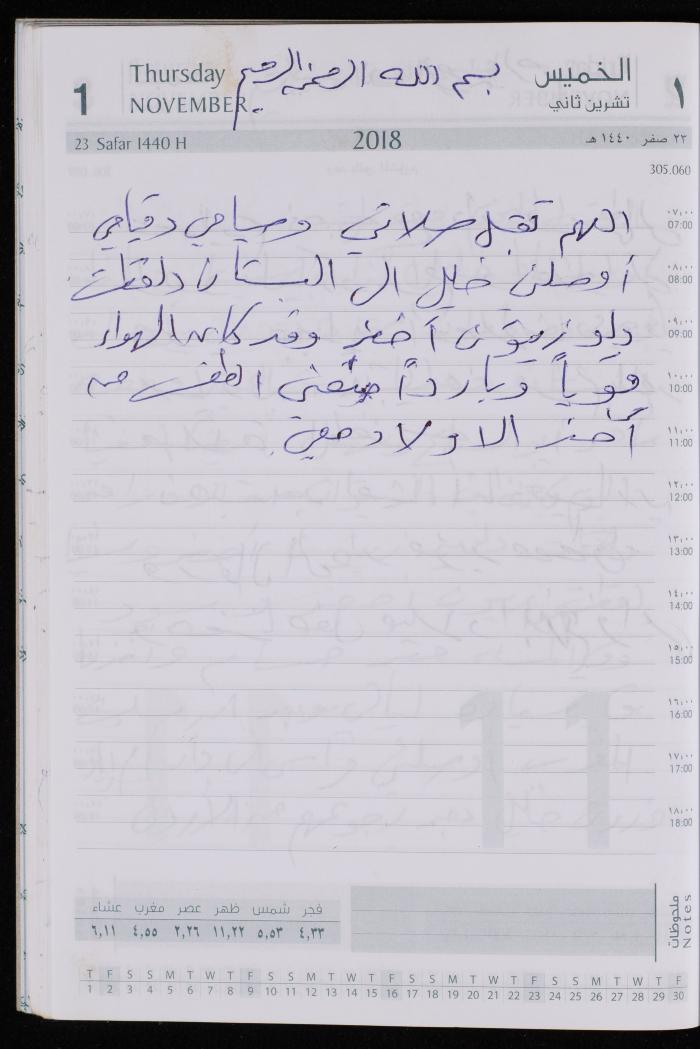 Thursday بسم الله الرحمن الرحيم الخميس
1 NOVEMBER تشرين ثاني ١
23 Safar 1440 H 2018 ٢٣ صفر ١٤٤٠ هـ
305.060
اللهم تقبل صلاتي وصيامي وقيامي ٠٧:٠٠ 07:00
أوصلني خليل الى البستان ولقطت ٠٨:٠٠ 08:00
دلو زيتون أخضر وقد كان الهواء ٠٩:٠٠ 09:00
قوياً وبارداً الطقس ١٠:٠٠ 10:00
الاولاد معي ١١:٠٠ 11:00
١٢:٠٠ 12:00
١٣:٠٠ 13:00
١٤:٠٠ 14:00
١٥:٠٠ 15:00
١٦:٠٠ 16:00
١٧:٠٠ 17:00
١٨:٠٠ 18:00
11
فجر شمس ظهر عصر مغرب عشاء
٤,٣٣ ٥,٥٣ ١١,٢٢ ٢,٢٦ ٤,٥٥ ٦,١١
ملحوظات
Notes
T F S S M T W T F S S M T W T F S S M T W T F S S M T W T F
1 2 3 4 5 6 7 8 9 10 11 12 13 14 15 16 17 18 19 20 21 22 23 24 25 26 27 28 29 30